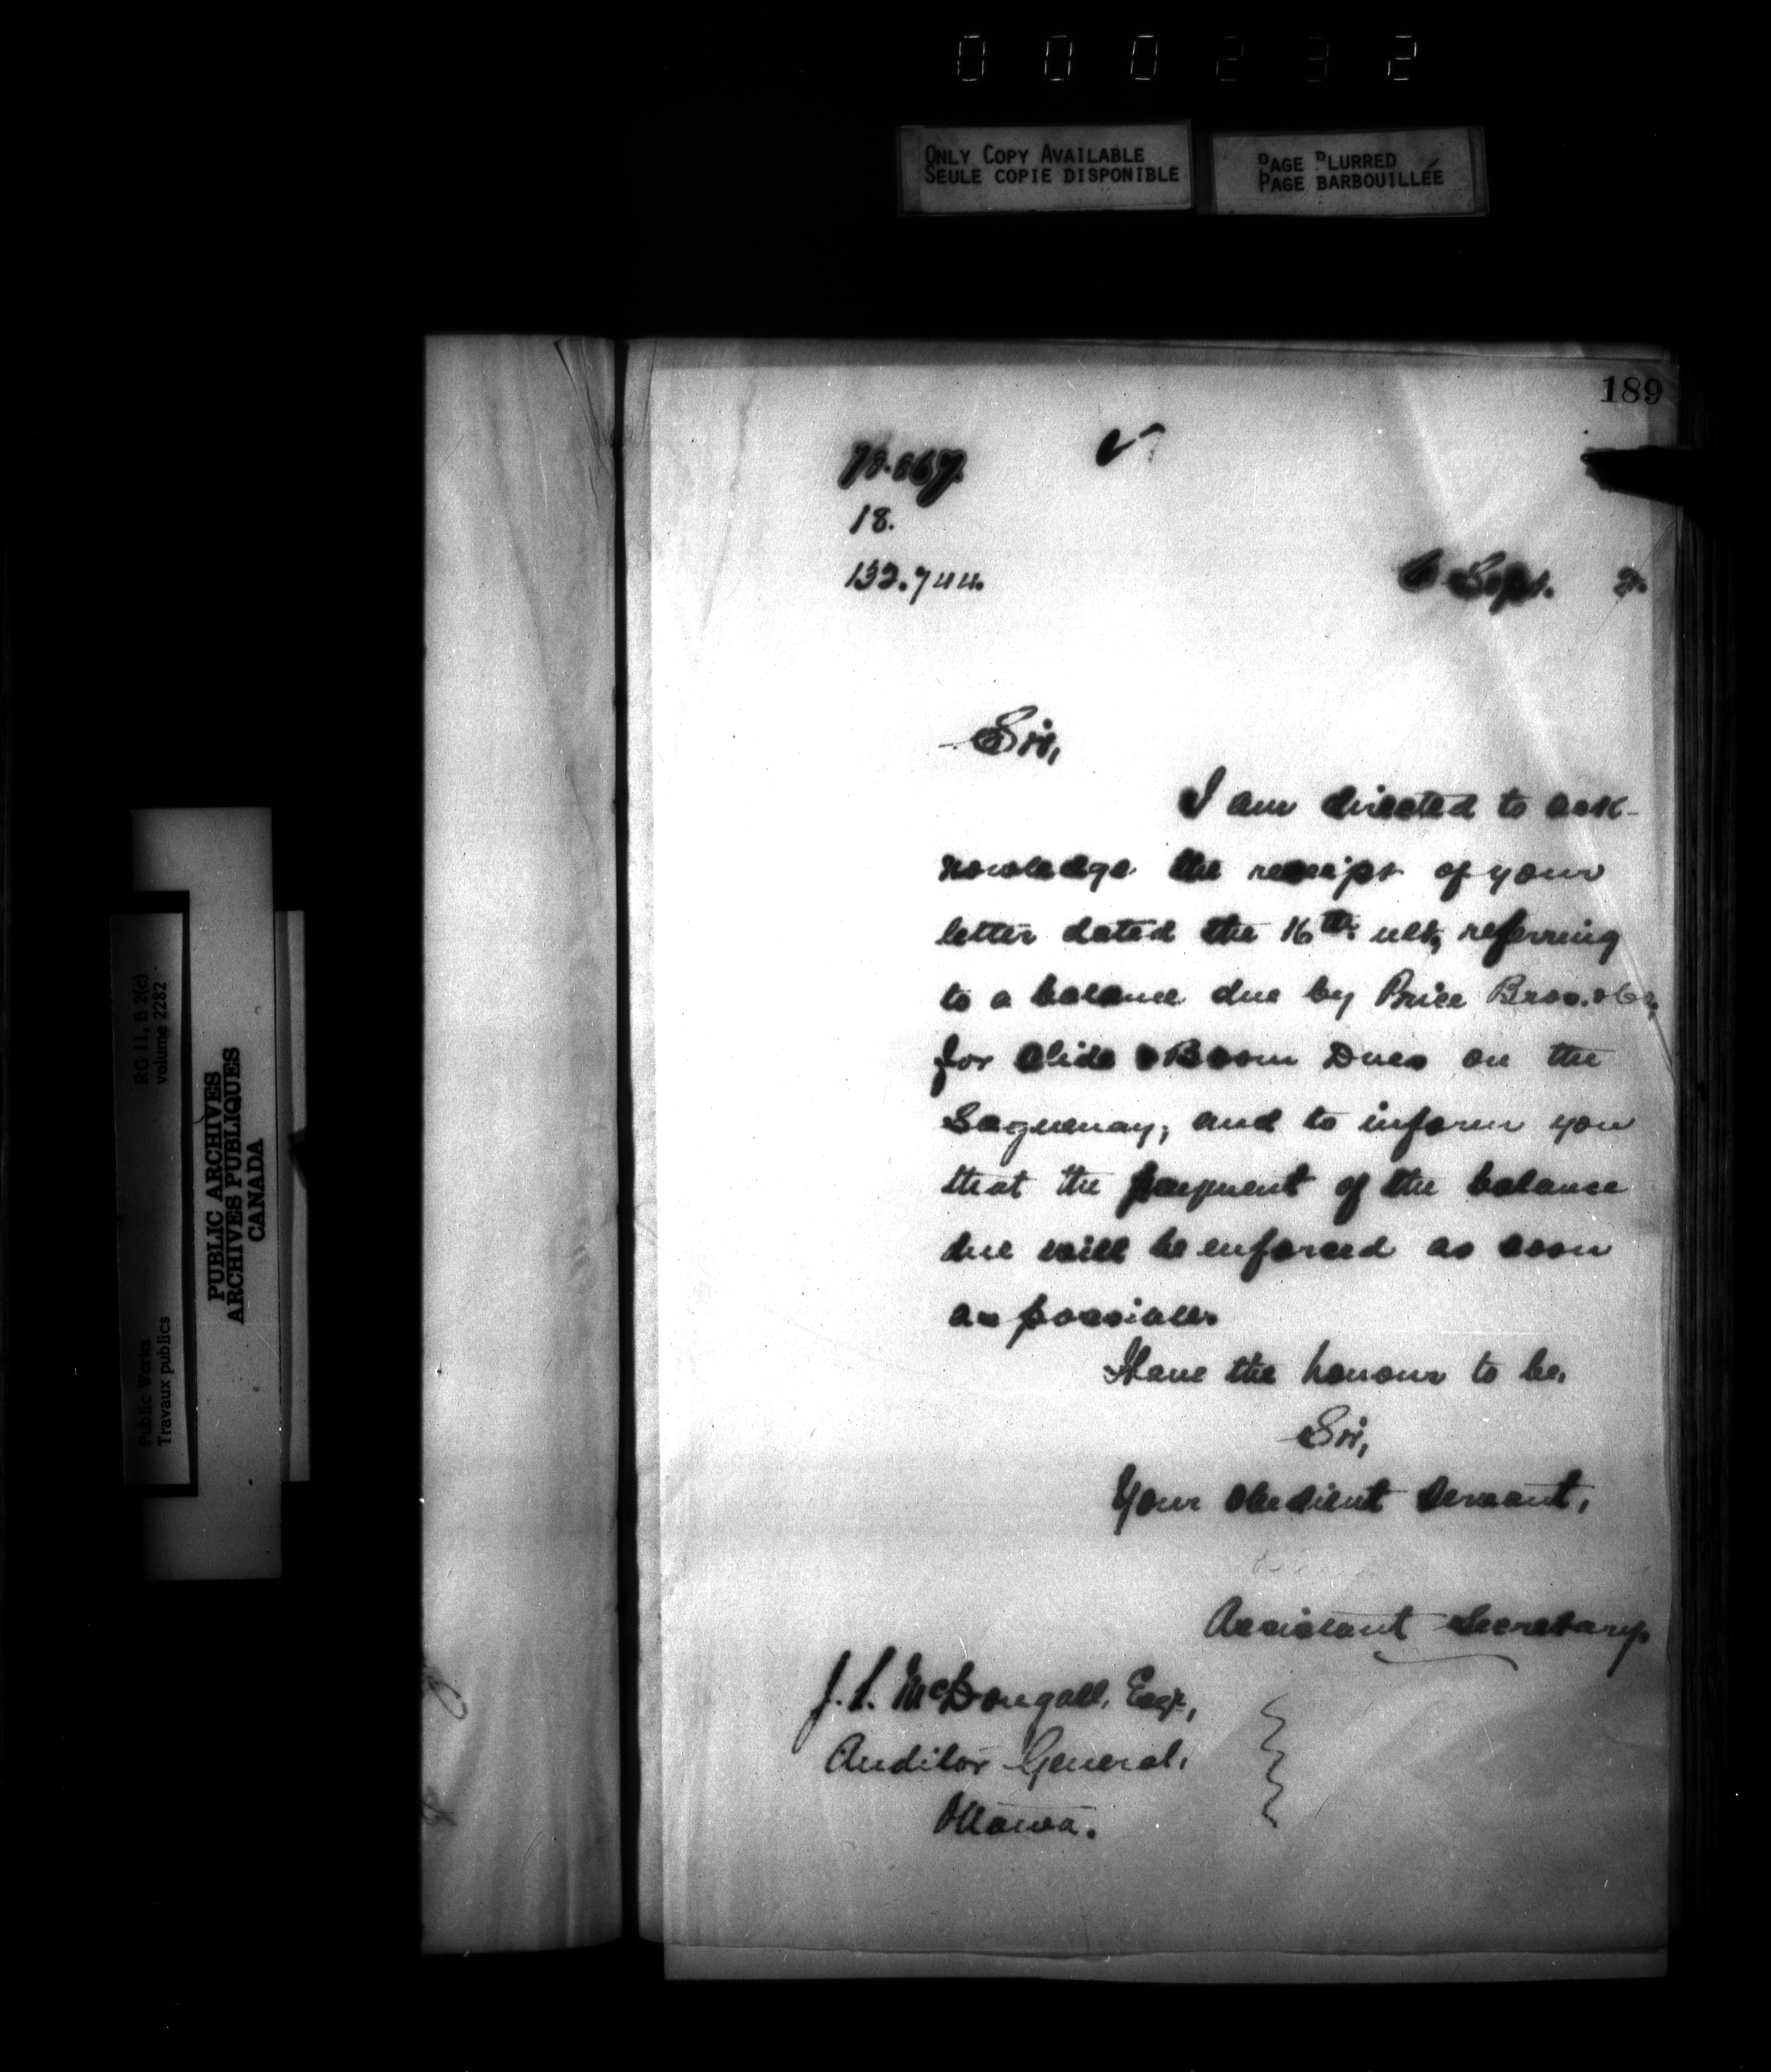 000232
ONLY COPY AVAILABLE
SEULE COPIE DISPONIBLE
PAGE BLURRED
PAGE BARBOUILLÉE
189
18.
132.744.
6 Sept. 2.
Sir,
I am directed to ack-
nowledge the receipt of your
letter dated the 16th. ult, referring
to a balance due by Price Bros. & Co,
for Slide & Boom Dues on the
Saguenay; and to inform you
that the payment of the balance
due will be enforced as soon
as possible.
I have the honour to be,
Sir,
Your obedient Servant,
Assistant Secretary.
J. L. McDougall, Esqr,
Auditor General,
Ottawa.
RG 11, B 2(c)
volume 2282
Public Works
Travaux publics
PUBLIC ARCHIVES
ARCHIVES PUBLIQUES
CANADA